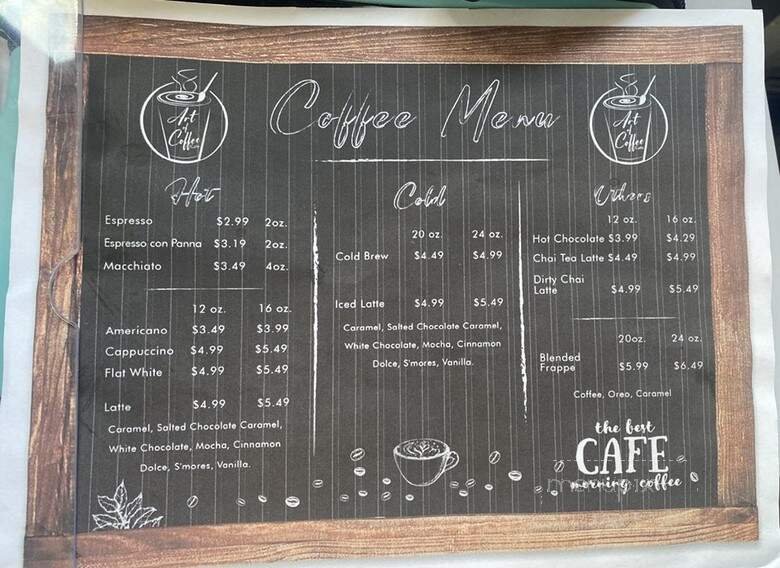 Art
of
Coffee
Coffee Menu
Art
of
Coffee
Hot
Espresso $2.99 2oz.
Espresso con Panna $3.19 2oz.
Macchiato $3.49 4oz.
12 oz. 16 oz.
Americano $3.49 $3.99
Cappuccino $4.99 $5.49
Flat White $4.99 $5.49
Latte $4.99 $5.49
Caramel, Salted Chocolate Caramel,
White Chocolate, Mocha, Cinnamon
Dolce, S'mores, Vanilla.
Cold
20 oz. 24 oz.
Cold Brew $4.49 $4.99
Iced Latte $4.99 $5.49
Caramel, Salted Chocolate Caramel,
White Chocolate, Mocha, Cinnamon
Dolce, S'mores, Vanilla.
Others
12 oz. 16 oz.
Hot Chocolate $3.99 $4.29
Chai Tea Latte $4.49 $4.99
Dirty Chai
Latte $4.99 $5.49
20oz. 24 oz.
Blended
Frappe $5.99 $6.49
Coffee, Oreo, Caramel
the best
CAFE
morning coffee